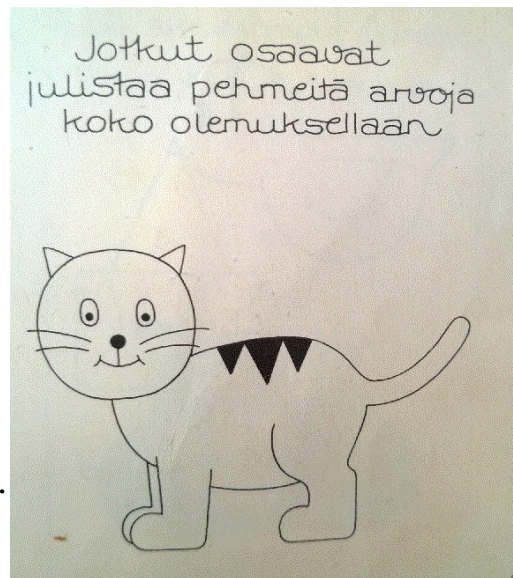 Jotkut osaavat
julistaa pehmeitä arvoja
koko olemuksellaan